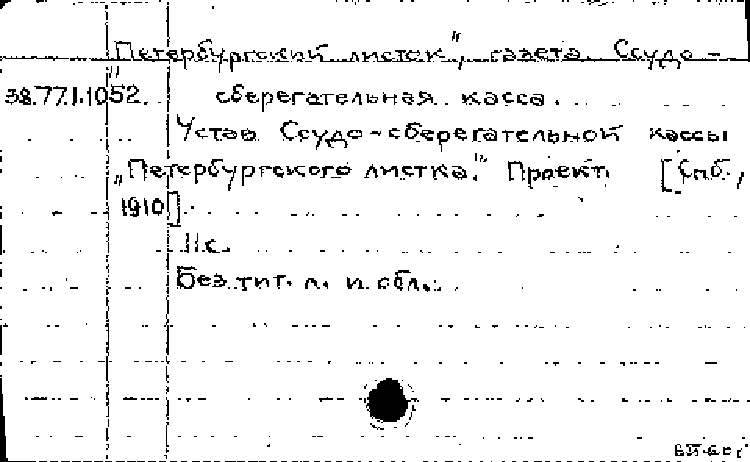 „Петербургский листок", газета. Ссудо-
38.77.1.1052. сберегательная касса.
Устав Ссудо-сберегательной кассы
„Петербургского листка." Проект. [Спб.,
1910].
11с.
Без тит. л. и обл.